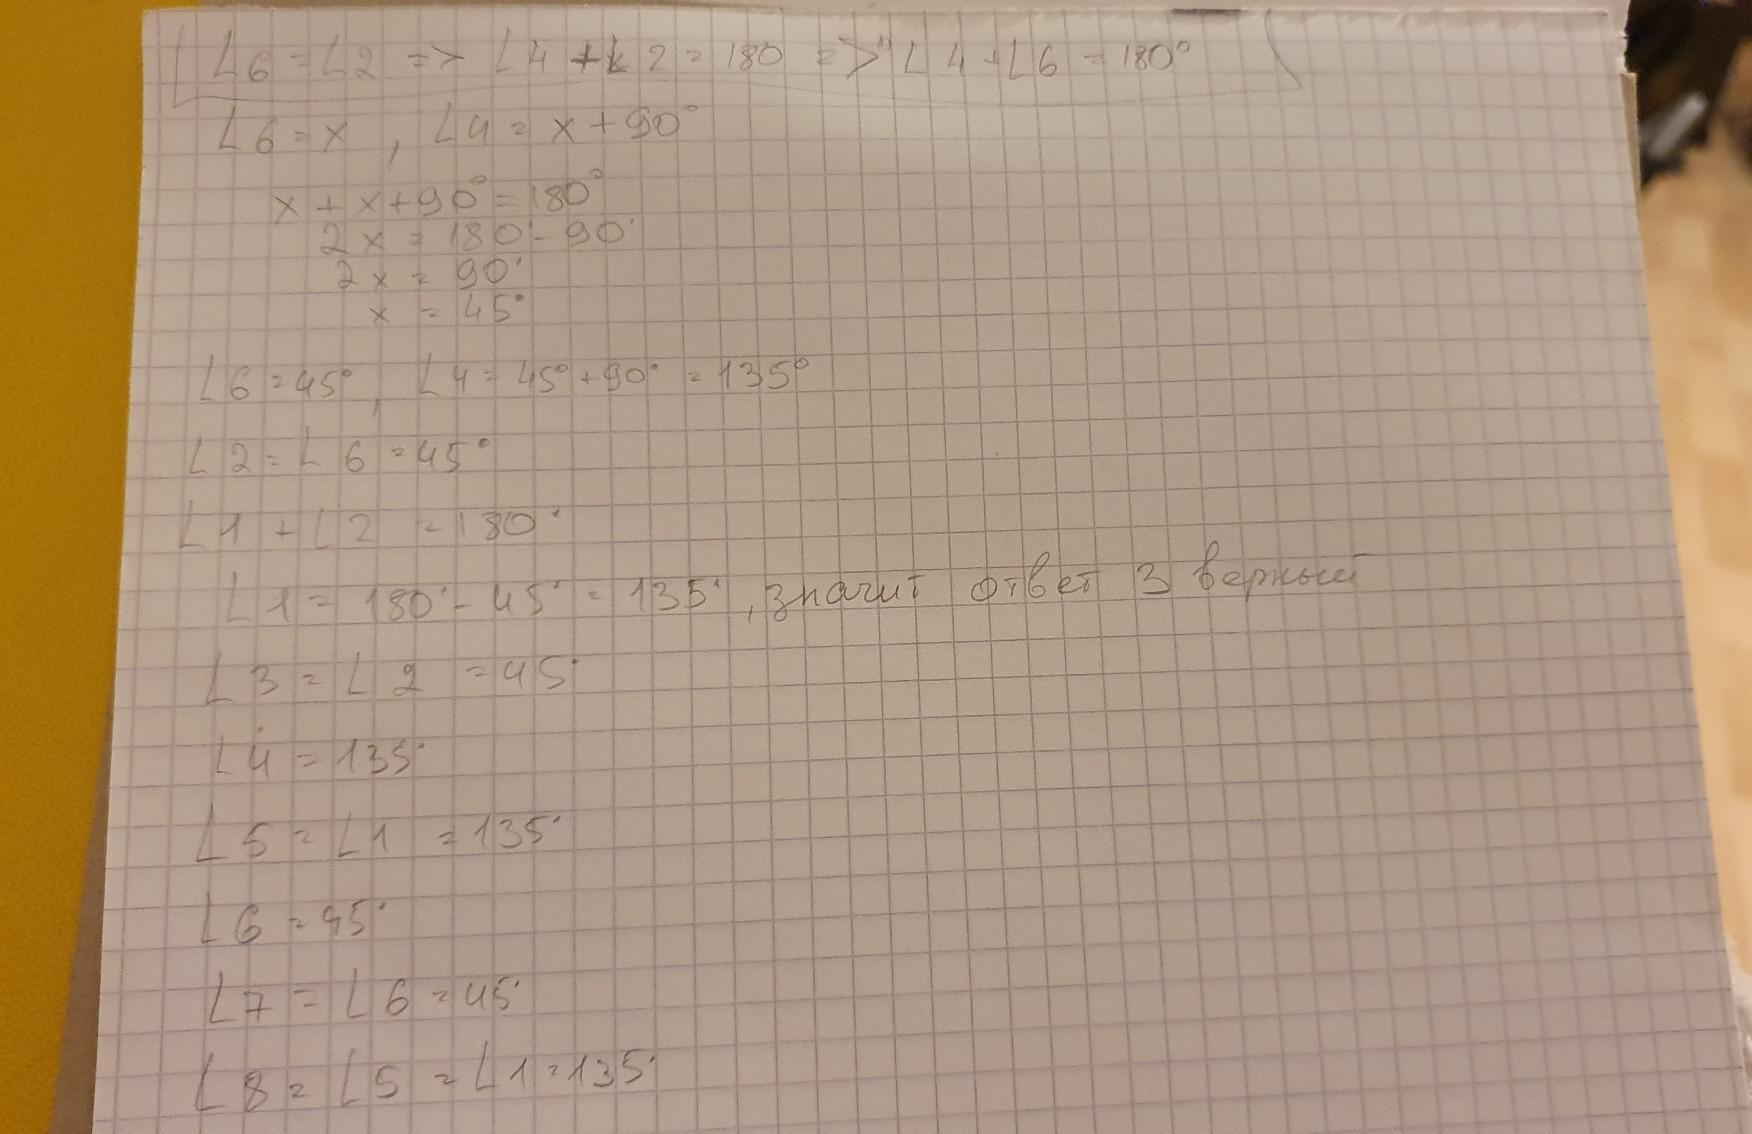 ∠6 = ∠2 => ∠4 + ∠2 = 180 => ∠4 + ∠6 = 180°
∠6 = x , ∠4 = x + 90°
x + x + 90° = 180°
2x = 180° - 90°
2x = 90°
x = 45°
∠6 = 45° , ∠4 = 45° + 90° = 135°
∠2 = ∠6 = 45°
∠1 + ∠2 = 180°
∠1 = 180° - 45° = 135° , значит ответ 3 верный
∠3 = ∠2 = 45°
∠4 = 135°
∠5 = ∠1 = 135°
∠6 = 45°
∠7 = ∠6 = 45°
∠8 = ∠5 = ∠1 = 135°